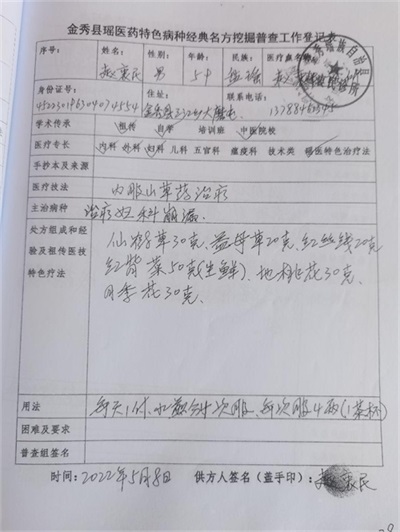 金秀县瑶医药特色病种经典名方挖掘普查工作登记表
序号： 姓名： 性别： 年龄： 民族： 医疗
男
身份证号： 住址： 联系电话：
学术传承 祖传 自学 培训班 中医院校
医疗专长 内科 外科 妇科 儿科 五官科 瘟疫科 技术类 瑶医特色治疗法
手抄本及来源
医疗技法 内服山草药治疗
主治病种 治疗妇科崩漏.
处方组成和经 仙鹤草30克、益母草20克、红丝线20克
验及祖传医技 红背菜50克(生鲜)、地桃花30克、
特色疗法 月季花30克、
用法 每天1付、水煎分 次服、每次服4两(1茶杯)
困难及要求
普查组签名
时间：2022年5月8日 供方人签名（盖手印）：